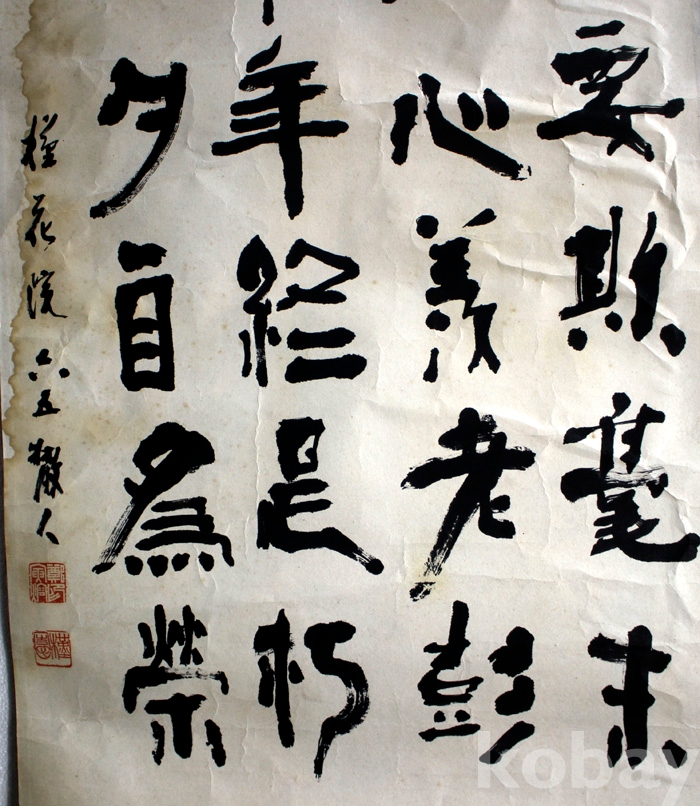 要欺毫末
心羨老彭
年終是朽
夕自爲榮
槿花院 六五散人
kobay